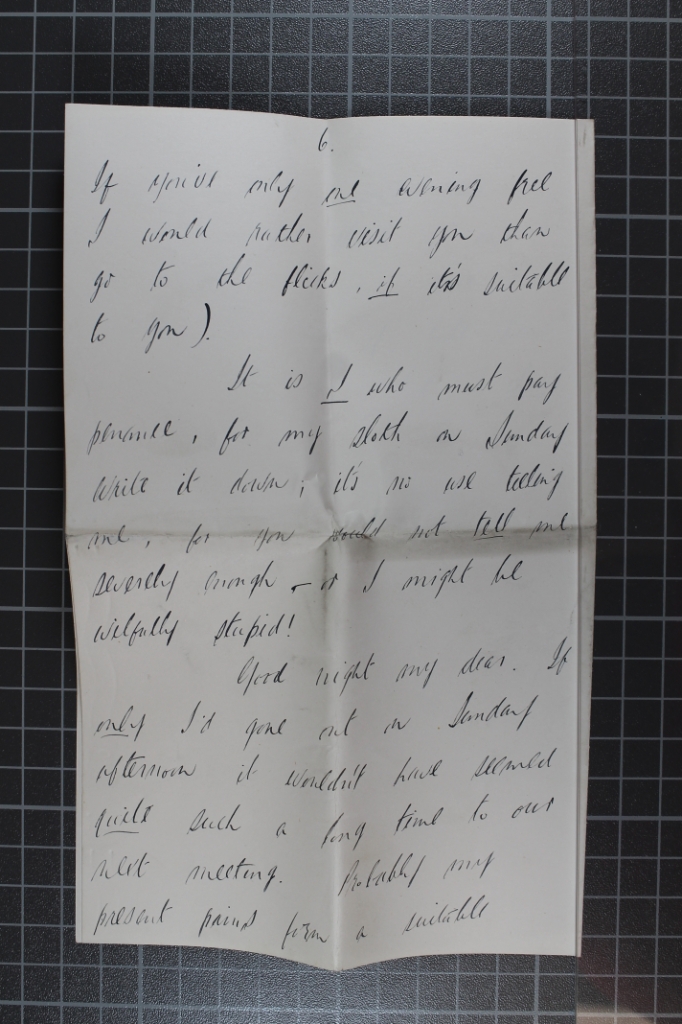 6.
If you've only one evening free
I would rather visit you than
go to the flicks, if it's suitable
to you).
It is I who must pay
penance, for my sloth on Sunday
Write it down; it's no use telling
me, for you would not tell me
severely enough – or I might be
wilfully stupid!
Good night my dear. If
only I'd gone out on Sunday
afternoon it wouldn't have seemed
quite such a long time to our
next meeting. Probably my
present pains form a suitable